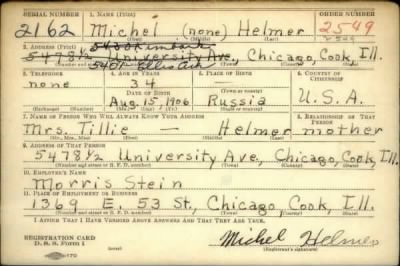 SERIAL NUMBER 1. NAME (Print) ORDER NUMBER
2162 Michel (none) Helmer 2549
(First) (Middle) (Last)
2. ADDRESS (Print)
5478½ University Ave., Chicago, Cook, Ill.
(Number and street or R. F. D. number) (Town) (County) (State)
3. TELEPHONE 4. AGE IN YEARS 5. PLACE OF BIRTH 6. COUNTRY OF CITIZENSHIP
none 34
DATE OF BIRTH (Town or county)
Aug. 15, 1906 Russia U.S.A.
(Exchange) (Number) (Mo.) (Day) (Yr.) (State or country)
7. NAME OF PERSON WHO WILL ALWAYS KNOW YOUR ADDRESS 8. RELATIONSHIP OF THAT PERSON
Mrs. Tillie — Helmer mother
(Mr., Mrs., Miss) (First) (Middle) (Last)
9. ADDRESS OF THAT PERSON
5478½ University Ave., Chicago, Cook, Ill.
(Number and street or R. F. D. number) (Town) (County) (State)
10. EMPLOYER'S NAME
Morris Stein
11. PLACE OF EMPLOYMENT OR BUSINESS
1369 E. 53 St., Chicago, Cook, Ill.
(Number and street or R. F. D. number) (Town) (County) (State)
I AFFIRM THAT I HAVE VERIFIED ABOVE ANSWERS AND THAT THEY ARE TRUE.
REGISTRATION CARD
D. S. S. Form 1
Michel Helmer
(Registrant's signature)